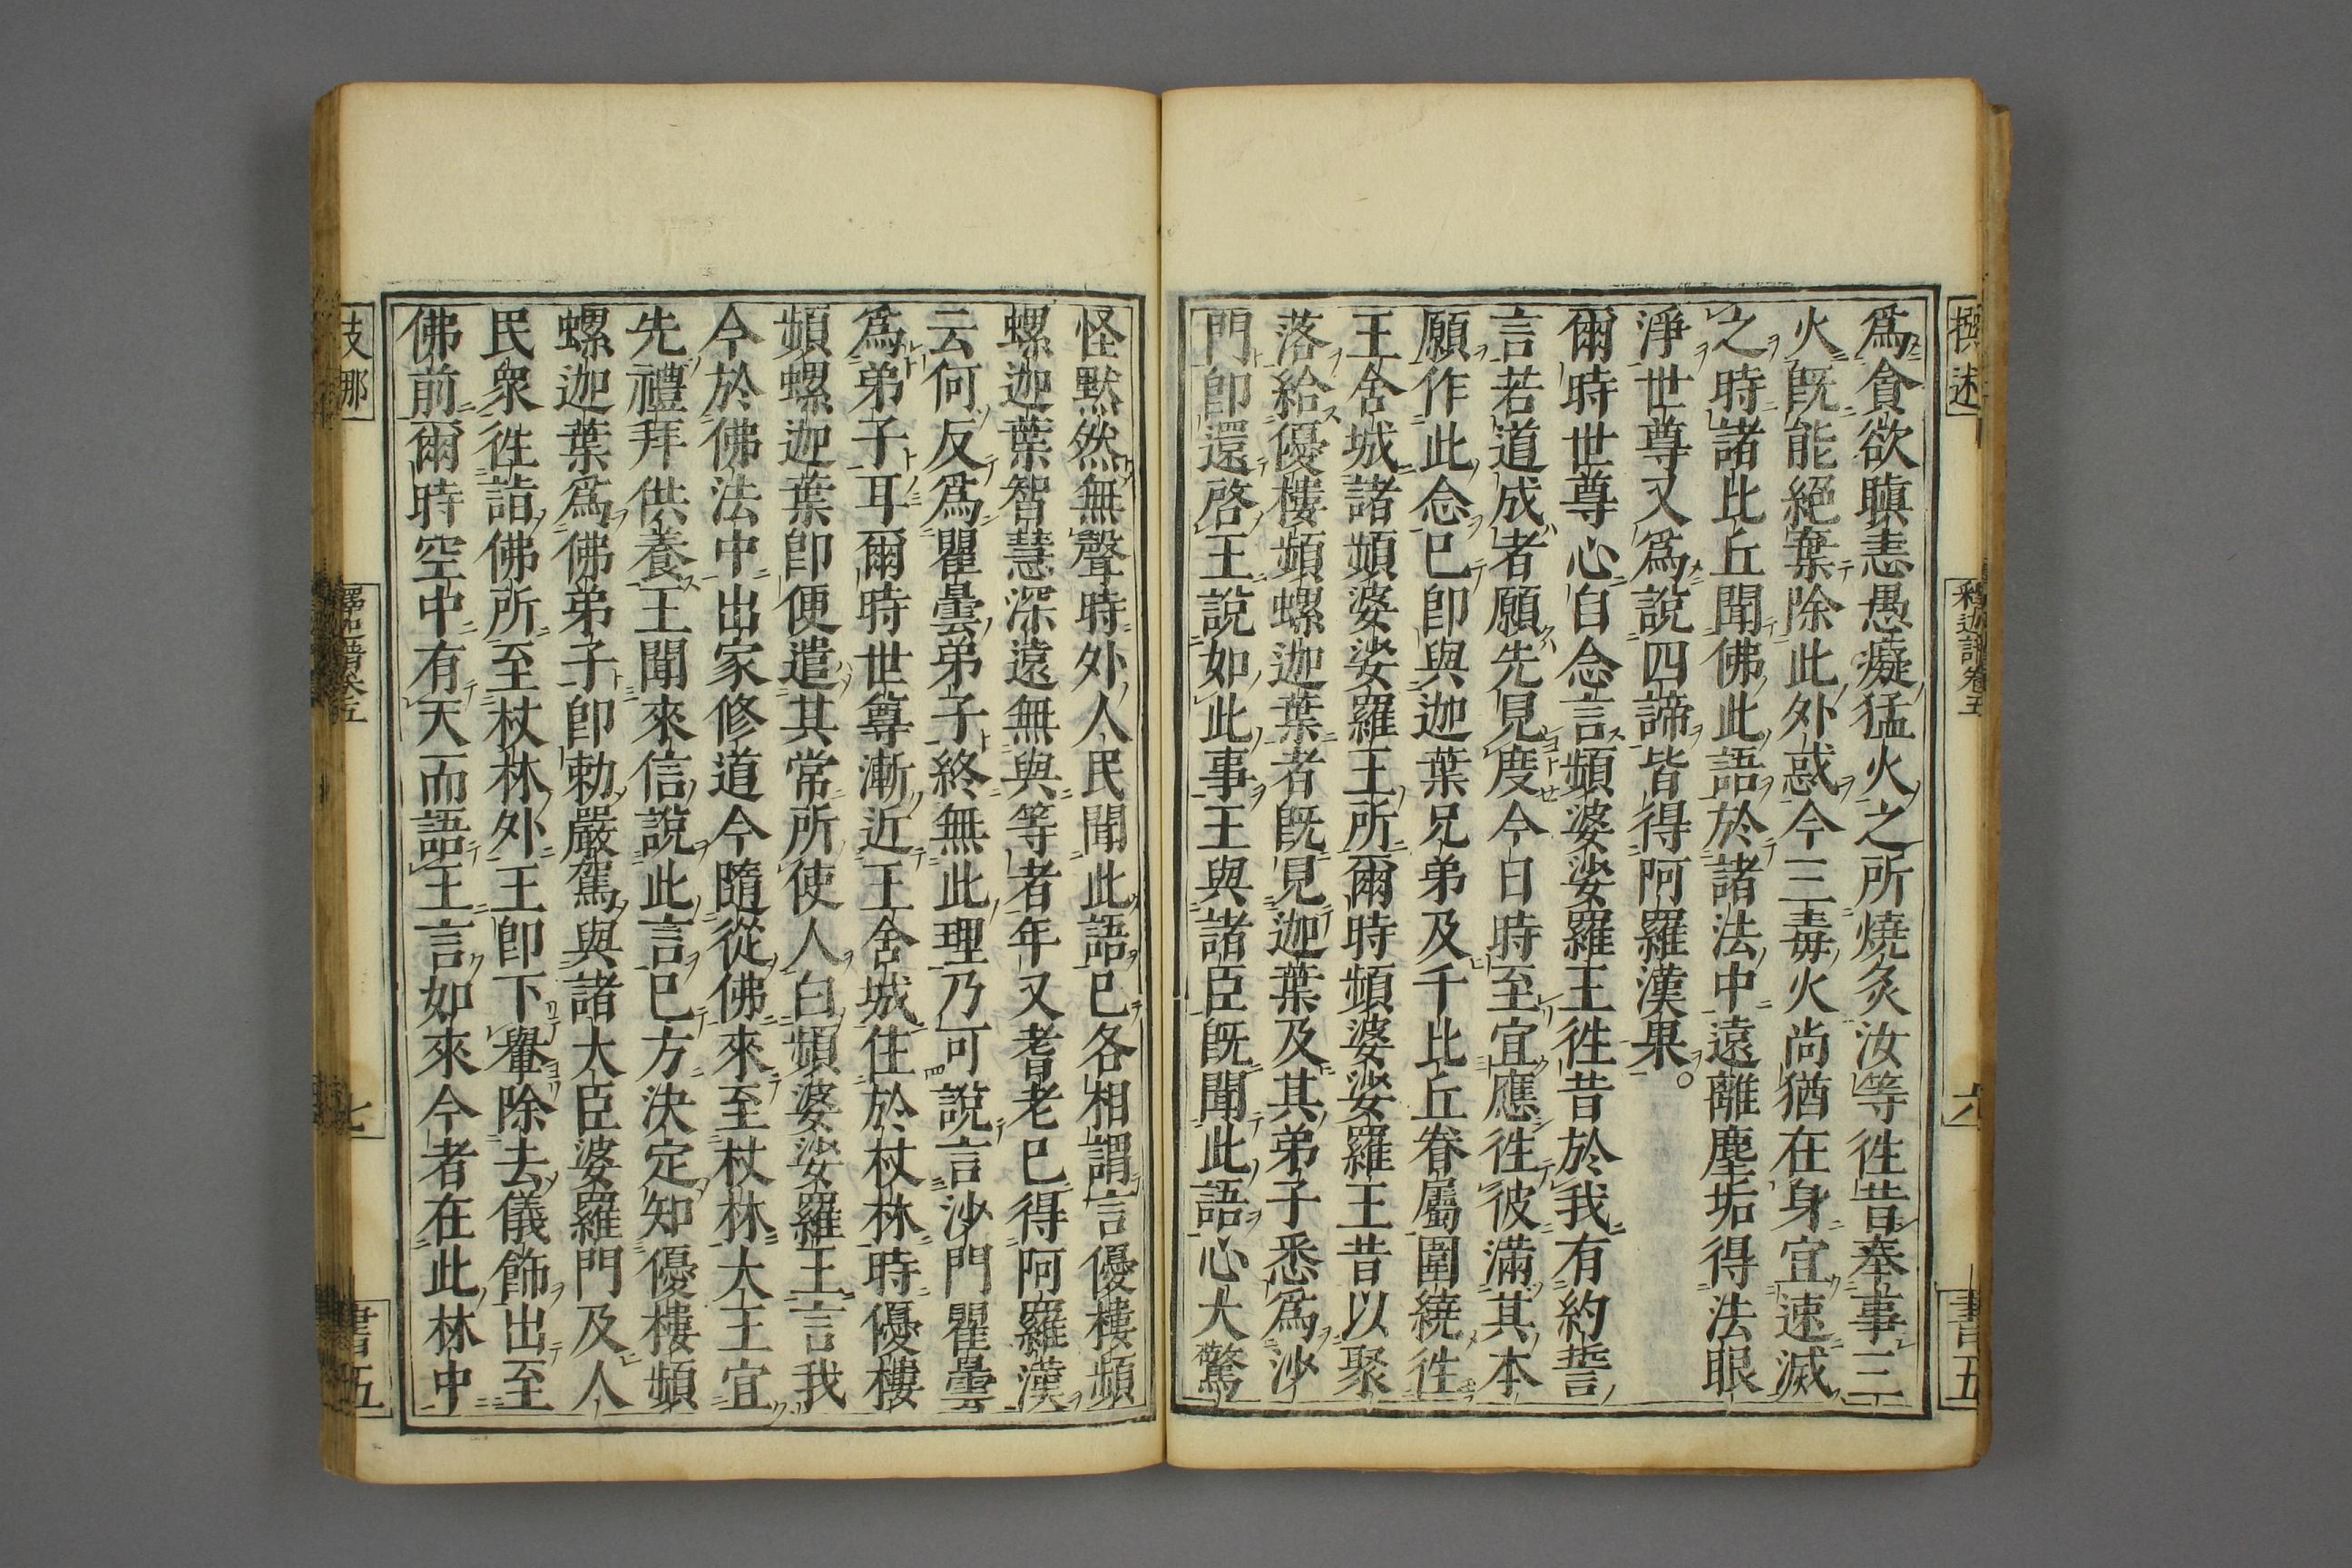 撰述
釋迦譜卷五
六
書五
爲貪欲瞋恚愚癡猛火之所燒炙汝等徃昔奉事三
火旣能絕棄除此外惑今三毒火尚猶在身宜速滅
之時諸比丘聞佛此語於諸法中遠離塵垢得法眼
淨世尊又爲說四諦皆得阿羅漢果。
爾時世尊心自念言頻婆娑羅王徃昔於我有約誓
言若道成者願先見度今日時至宜應徃彼滿其本
願作此念已卽與迦葉兄弟及千比丘眷屬圍繞徃
王舍城諸頻婆娑羅王所爾時頻婆娑羅王昔以聚
落給優樓頻螺迦葉者旣見迦葉及其弟子悉爲沙
門卽還啓王說如此事王與諸臣旣聞此語心大驚
怪默然無聲時外人民聞此語已各相謂言優樓頻
螺迦葉智慧深遠無與等者年又耆老已得阿羅漢
云何反爲瞿曇弟子終無此理乃可說言沙門瞿曇
爲弟子耳爾時世尊漸近王舍城住於杖林時優樓
頻螺迦葉卽便遣其常所使人白頻婆娑羅王言我
今於佛法中出家修道今隨從佛來至杖林大王宜
先禮拜供養王聞來信說此言已方決定知優樓頻
螺迦葉爲佛弟子卽勅嚴駕與諸大臣婆羅門及人
民衆徃詣佛所至杖林外王卽下轝除去儀飾出至
佛前爾時空中有天而語王言如來今者在此林中
支那
七
書五